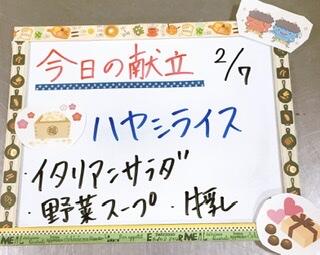 今日の献立 2/7
ハヤシライス
・イタリアンサラダ
・野菜スープ ・牛乳